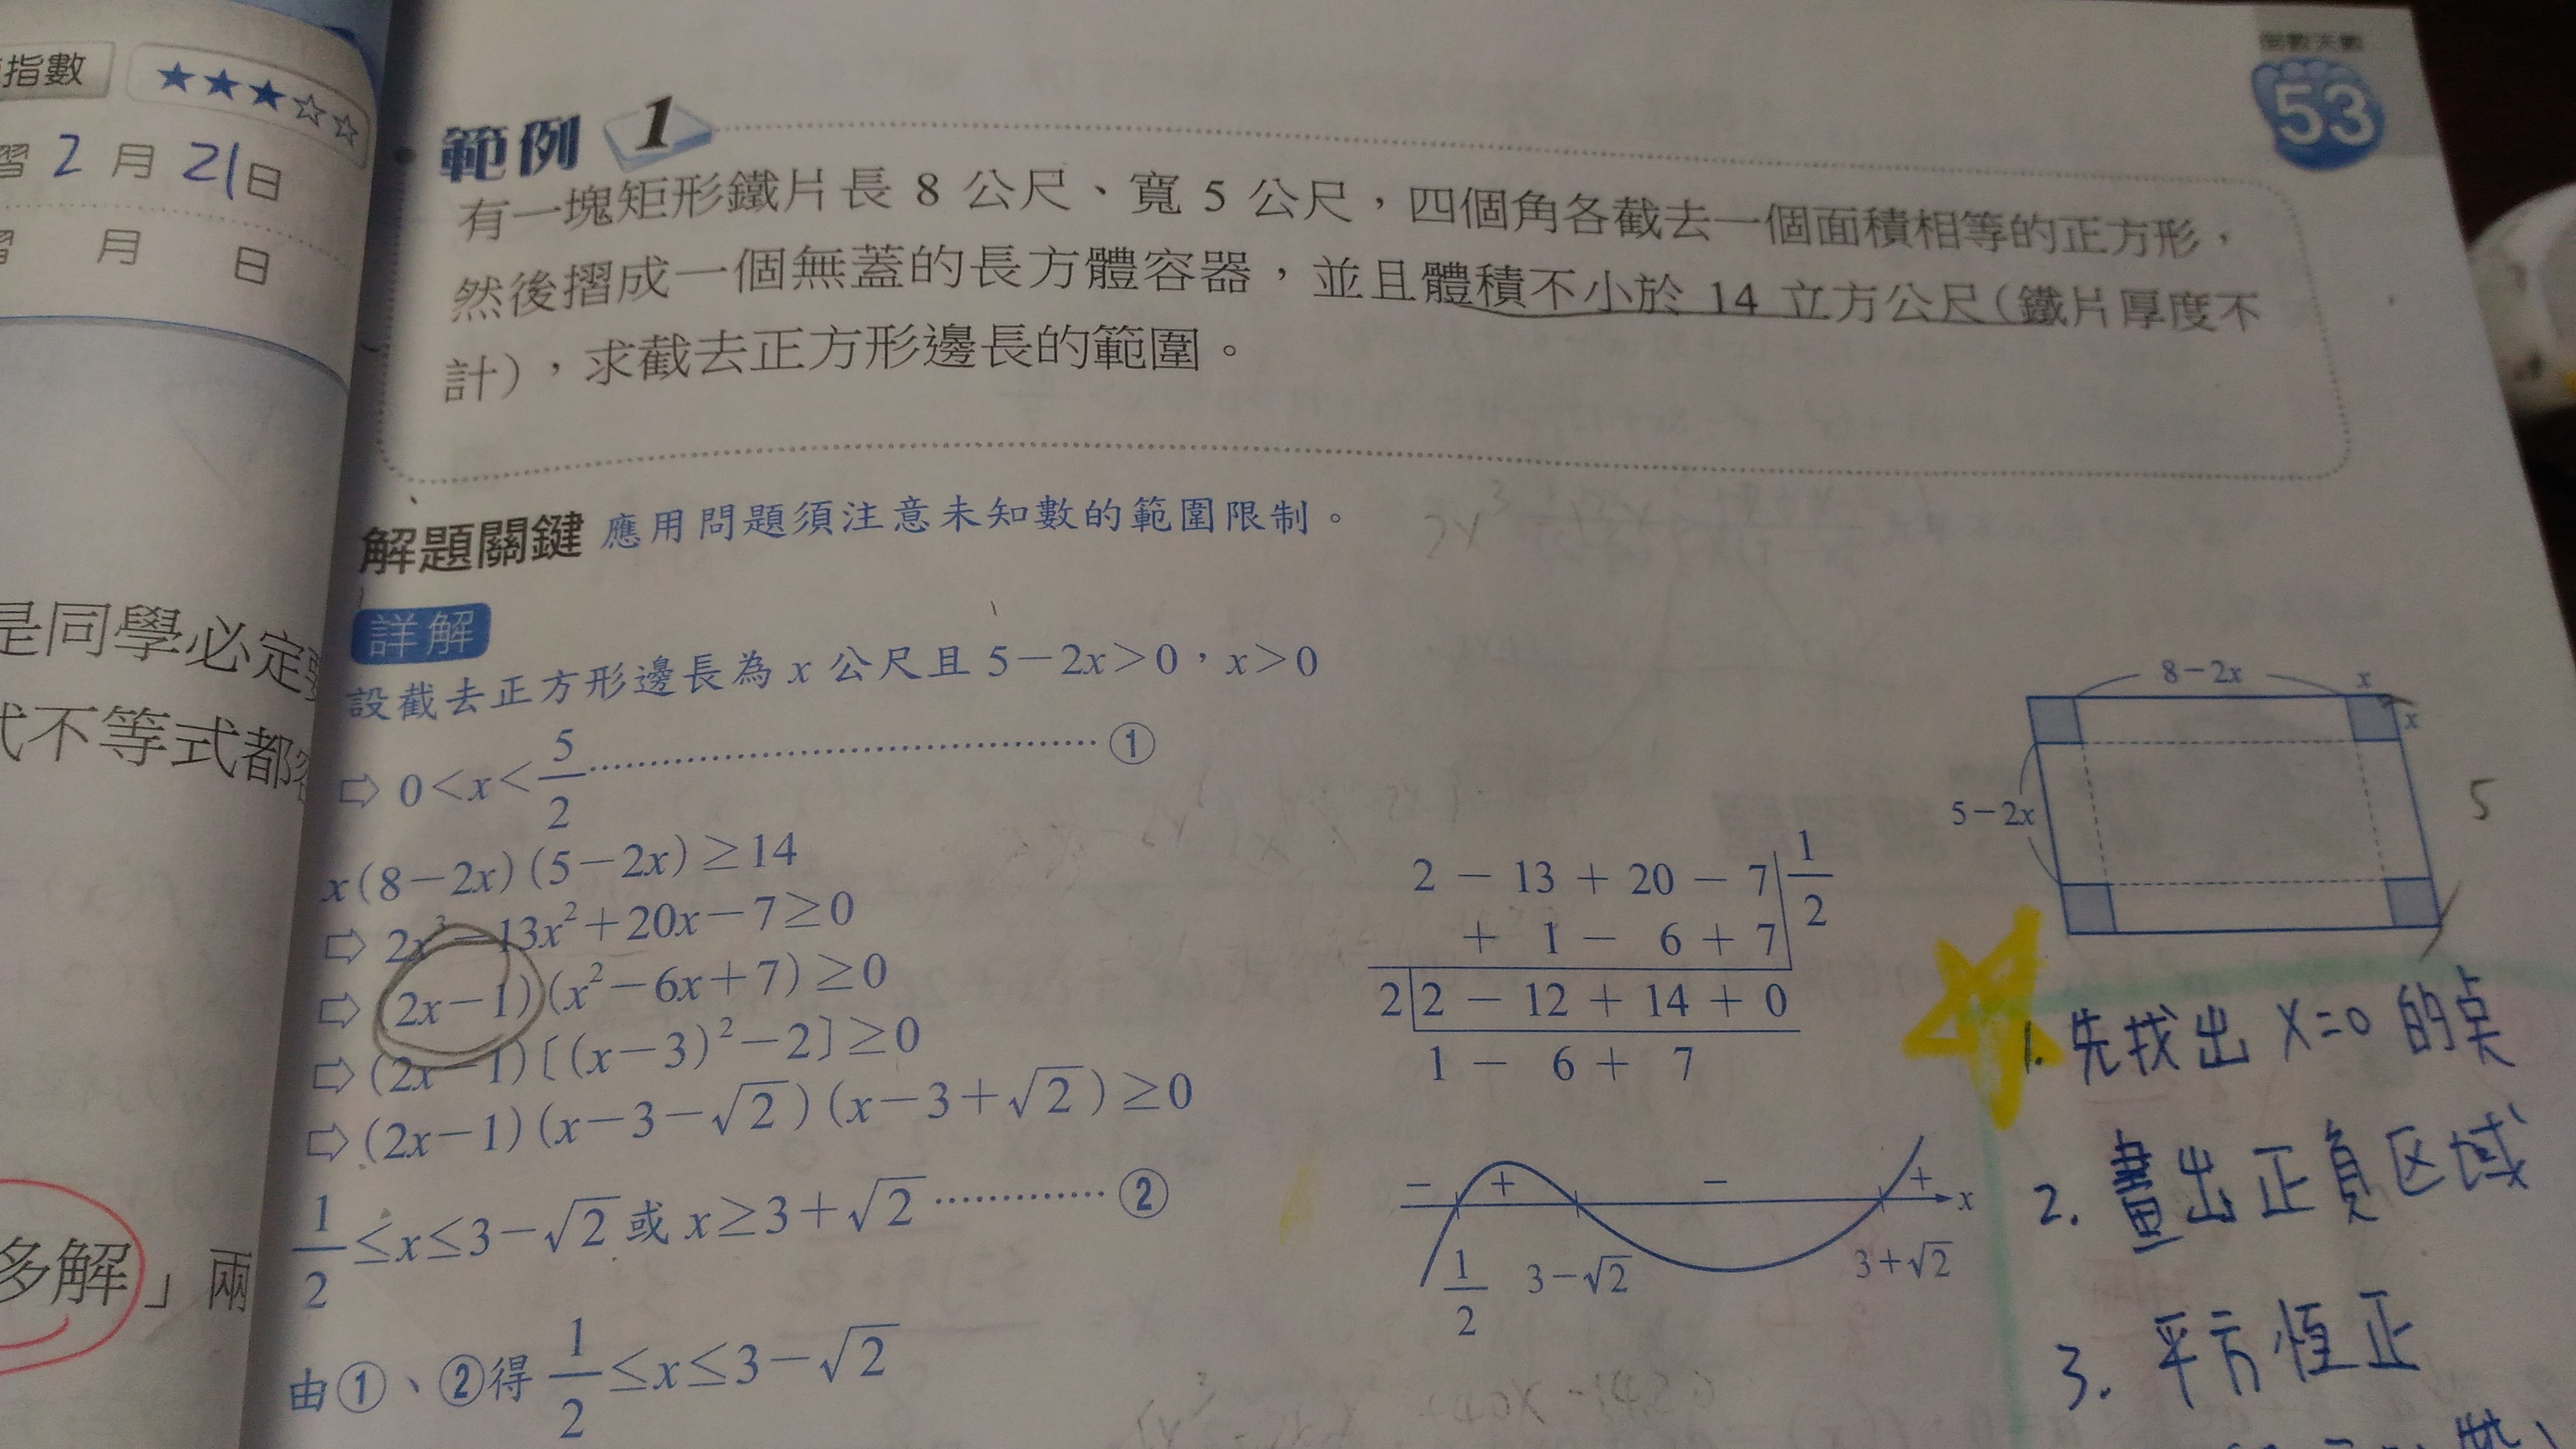 指數 ★★★☆☆
習 2 月 21 日
習 月 日
是同學必定
式不等式都
多解」兩
倒數天數
53
範例 1
有一塊矩形鐵片長 8 公尺、寬 5 公尺，四個角各截去一個面積相等的正方形，
然後摺成一個無蓋的長方體容器，並且體積不小於 14 立方公尺（鐵片厚度不
計），求截去正方形邊長的範圍。
解題關鍵 應用問題須注意未知數的範圍限制。
詳解
設截去正方形邊長為 x 公尺且 5－2x＞0，x＞0
⇨ 0＜x＜5/2 ………①
x(8－2x)(5－2x)≥14
⇨ 2x³－13x²＋20x－7≥0
⇨ (2x－1)(x²－6x＋7)≥0
⇨ (2x－1)[(x－3)²－2]≥0
⇨ (2x－1)(x－3－√2)(x－3＋√2)≥0
1/2≤x≤3－√2 或 x≥3＋√2 ………②
由①、②得 1/2≤x≤3－√2
2 － 13 ＋ 20 － 7 | 1/2
＋ 1 － 6 ＋ 7
2 | 2 － 12 ＋ 14 ＋ 0
1 － 6 ＋ 7
－ ＋ － ＋ x
1/2 3－√2 3＋√2
8－2x x
x
5－2x 5
1. 先找出 X=0 的点
2. 畫出正負区域
3. 平方恆正